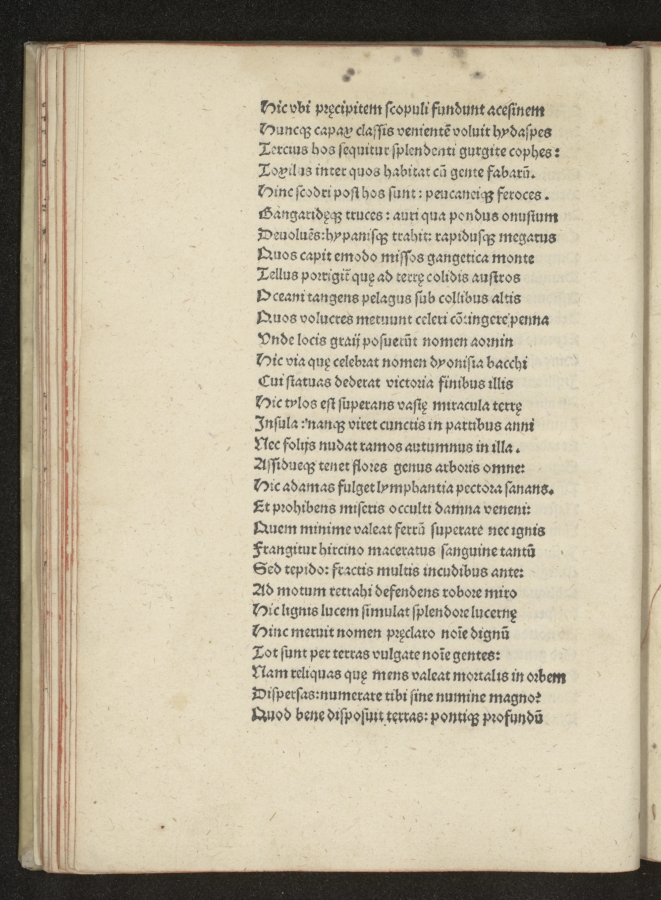 Hic vbi pręcipitem scopuli fundunt acesinem
Huncqꝫ capax classis venientē voluit hydaspes
Tercius hos sequitur splendenti gurgite cophes:
Toxilas inter quos habitat cū gente fabarū.
Hinc scodri post hos sunt: peucaneiqꝫ feroces.
Gangaridęqꝫ truces: auri qua pondus onustum
Deuoluēs: hypanisqꝫ trahit: rapidusqꝫ megarus
Quos capit emodo missos gangetica monte
Tellus porrigit̄ quę ad terrę colidis austros
Oceani tangens pelagus sub collibus altis
Quos volucres metuunt celeri cōtingere penna
Vnde locis graij posuerūt nomen aornin
Hic via quę celebrat nomen dyonisia bacchi
Cui statuas dederat victoria finibus illis
Hic tylos est superans vastę miracula terrę
Insula: nanqꝫ viret cunctis in partibus anni
Nec folijs nudat ramos autumnus in illa.
Assidueqꝫ tenet flores genus arboris omne:
Hic adamas fulget lymphantia pectora sanans.
Et prohibens miseris occulti damna veneni:
Quem minime valeat ferrū superare nec ignis
Frangitur hircino maceratus sanguine tantū
Sed tepido: fractis multis incudibus ante:
Ad motum retrahi defendens robore miro
Hic lignis lucem simulat splendore lucernę
Hinc meruit nomen pręclaro noīe dignū
Tot sunt per terras vulgate noīe gentes:
Nam reliquas quę mens valeat mortalis in orbem
Dispersas: numerare tibi sine numine magno?
Quod bene disposuit terras: pontiqꝫ profundū